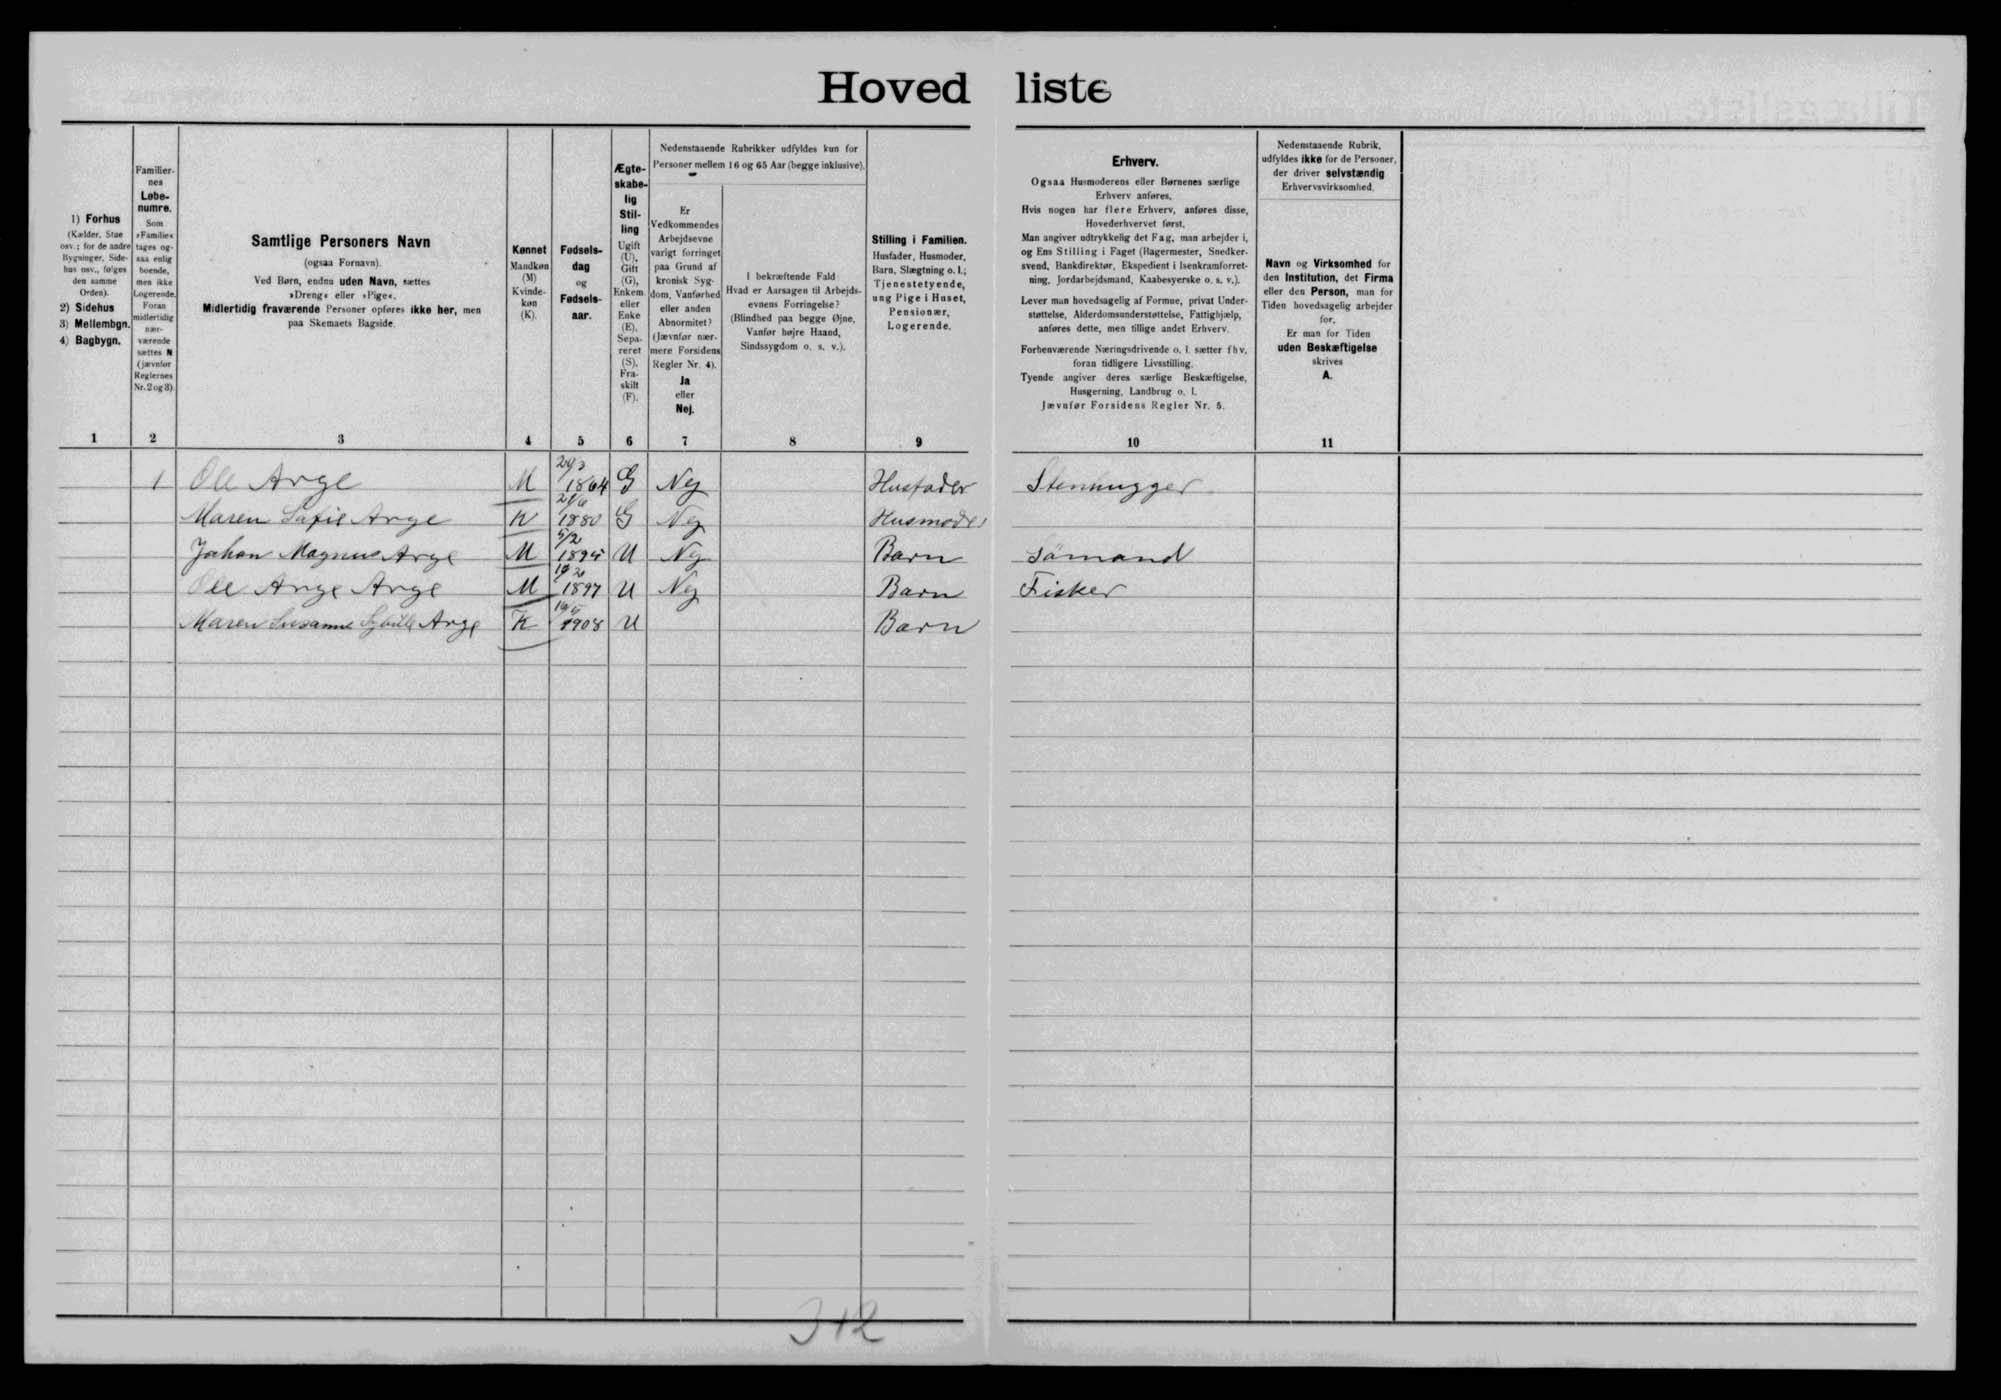 Hovedliste
1) Forhus
(Kælder, Stue
osv.; for de andre
Bygninger, Side-
hus osv., følges
den samme
Orden).
2) Sidehus
3) Mellembgn.
4) Bagbygn.
Familier-
nes
Løbe-
numre.
Som
»Familie«
tages og-
saa enlig
boende,
men ikke
Logerende.
Foran
midlertidig
nær-
værende
sættes N
(jævnfør
Reglernes
Nr. 2 og 3).
Samtlige Personers Navn
(ogsaa Fornavn).
Ved Børn, endnu uden Navn, sættes
»Dreng« eller »Pige«.
Midlertidig fraværende Personer opføres ikke her, men
paa Skemaets Bagside.
Kønnet
Mandkøn
(M)
Kvinde-
køn
(K).
Fødsels-
dag
og
Fødsels-
aar.
Ægte-
skabe-
lig
Stil-
ling
Ugift
(U),
Gift
(G),
Enkem.
eller
Enke
(E),
Sepa-
reret
(S),
Fra-
skilt
(F).
Nedenstaaende Rubrikker udfyldes kun for
Personer mellem 16 og 65 Aar (begge inklusive).
Er
Vedkommendes
Arbejdsevne
varigt forringet
paa Grund af
kronisk Syg-
dom, Vanførhed
eller anden
Abnormitet?
(Jævnfør nær-
mere Forsidens
Regler Nr. 4).
Ja
eller
Nej.
I bekræftende Fald:
Hvad er Aarsagen til Arbejds-
evnens Forringelse?
(Blindhed paa begge Øjne,
Vanfør højre Haand,
Sindssygdom o. s. v.).
Stilling i Familien.
Husfader, Husmoder,
Barn, Slægtning o. l.;
Tjenestetyende,
ung Pige i Huset,
Pensionær,
Logerende.
Erhverv.
Ogsaa Husmoderens eller Børnenes særlige
Erhverv anføres.
Hvis nogen har flere Erhverv, anføres disse,
Hovederhvervet først.
Man angiver udtrykkelig det Fag, man arbejder i,
og Ens Stilling i Faget (Bagermester, Snedker-
svend, Bankdirektør, Ekspedient i Isenkramforret-
ning, Jordarbejdsmand, Kaabesyerske o. s. v.).
Lever man hovedsagelig af Formue, privat Under-
støttelse, Alderdomsunderstøttelse, Fattighjælp,
anføres dette, men tillige andet Erhverv.
Forhenværende Næringsdrivende o. l. sætter fhv.
foran tidligere Livsstilling.
Tyende angiver deres særlige Beskæftigelse,
Husgerning, Landbrug o. l.
Jævnfør Forsidens Regler Nr. 5.
Nedenstaaende Rubrik,
udfyldes ikke for de Personer,
der driver selvstændig
Erhvervsvirksomhed.
Navn og Virksomhed for
den Institution, det Firma
eller den Person, man for
Tiden hovedsagelig arbejder
for.
Er man for Tiden
uden Beskæftigelse
skrives
A.
1 2 3 4 5 6 7 8 9 10 11
1 Ole Arge M 1864 G Nej Husfader Stenhugger
Maren Sofie Arge K 21/6 1880 G Nej Husmoder
Johan Magnus Arge M 5/2 1895 U Nej Barn Sömand
Ole Arge Arge M 1897 U Nej Barn Fisker
Maren Susanne Arge K 1908 U Barn
3+2